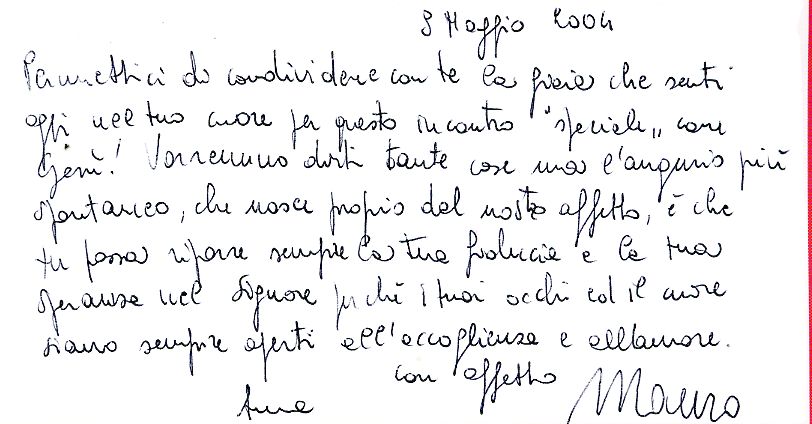 9 Maggio 2004
Permettici di condividere con te la gioia che senti
oggi nel tuo cuore per questo incontro "speciale" con
Gesù! Vorremmo dirti tante cose ma l'augurio più
spontaneo, che nasce proprio dal nostro affetto, è che
tu possa riporre sempre la tua fiducia e la tua
speranza nel Signore perché i tuoi occhi ed il cuore
siano sempre aperti all'accoglienza e all'amore.
con affetto
Anna Mauro